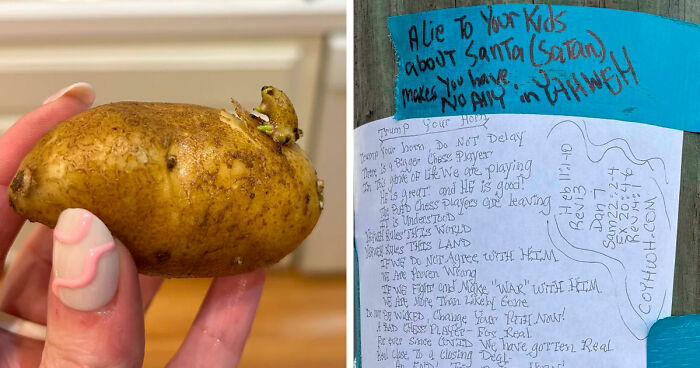 A Lie To Your Kids
about Santa (Satan)
makes You have
NO PITY in YAHWEH
Trump Your Horn
Trump Your Horn, Do Not Delay
There is a Bigger Chess Player
In This Move of Life We are playing
He is great and HE is good!
The Chess Players are leaving
is Understood
Rules THIS WORLD
Rules THIS LAND
IF WE Do Not Agree WITH HIM
We Are Proven Wrong
IF WE Fight and Make "WAR" WITH HIM
We Are More Than Likely Gone
Do Not Be Wicked, Change Your Path Now!
A BAD CHESS PLAYER - For Real
For ever since COVID We have gotten Real
Real Close To a Closing Deal
Heb 11:1-10
Rev 13
Dan 7
Sam 22:2-4
Ex 20:4-6
Rev 14:1
COYHWH.COM